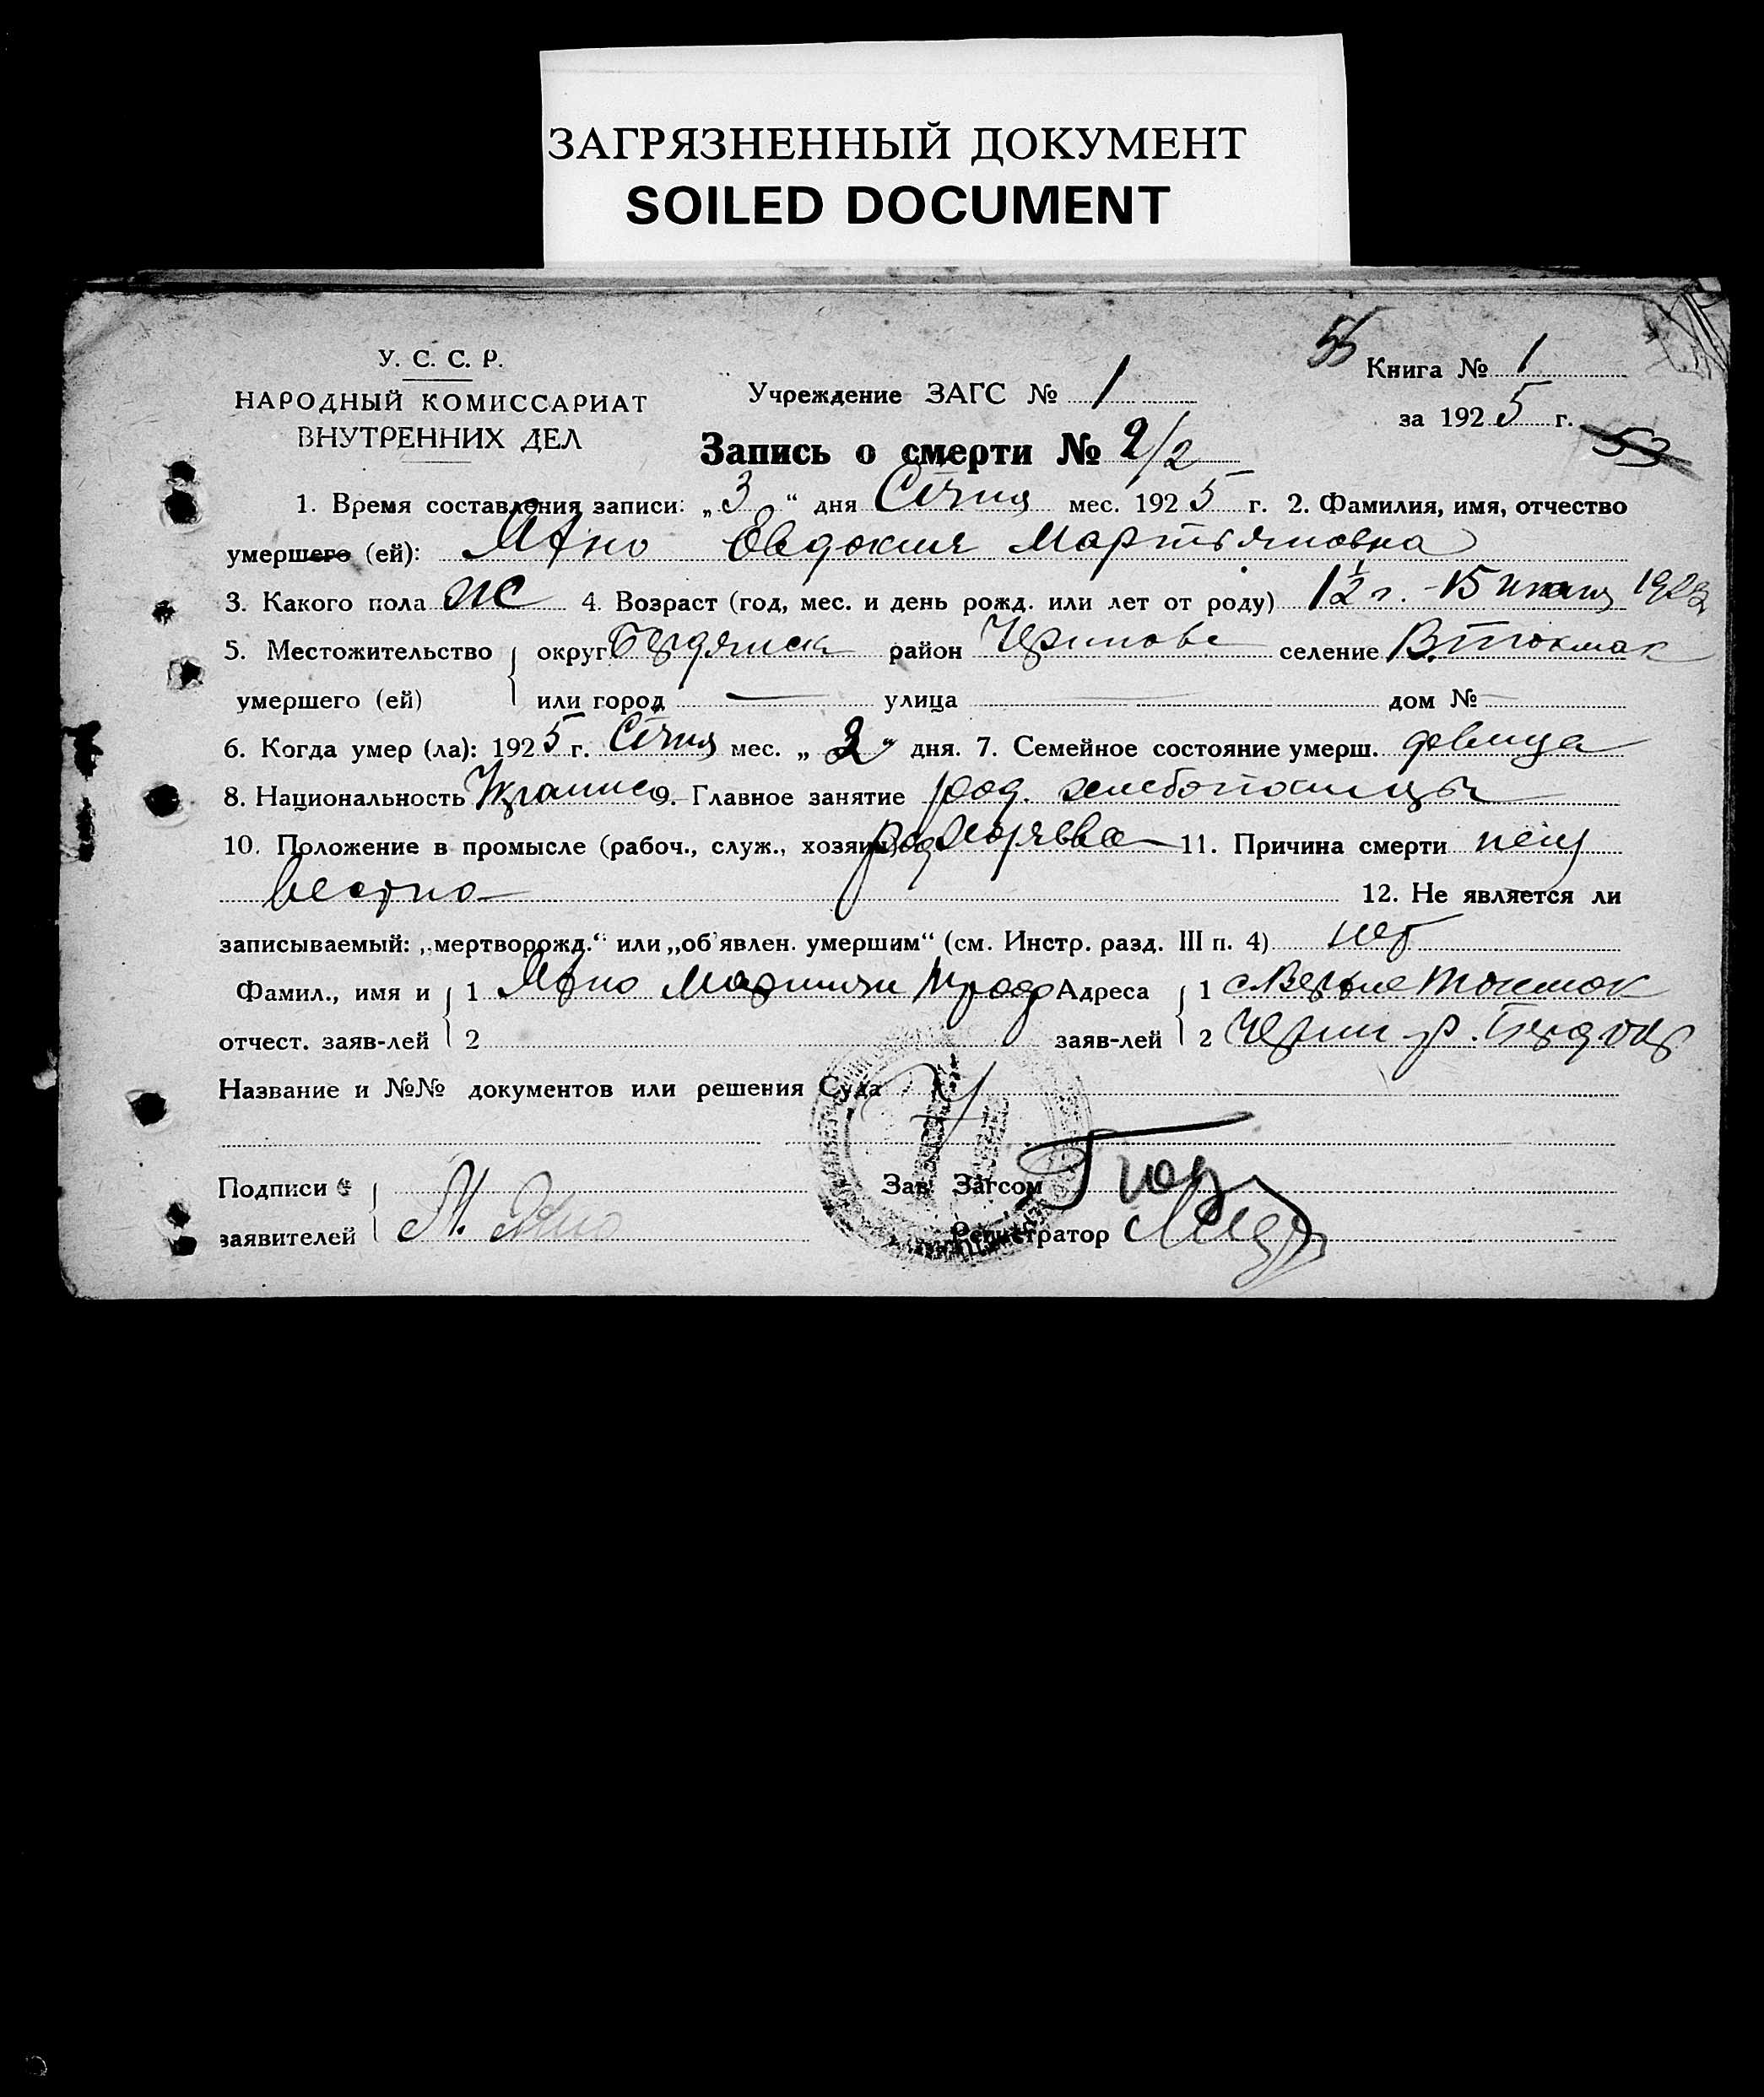 ЗАГРЯЗНЕННЫЙ ДОКУМЕНТ
SOILED DOCUMENT
У. С. С. Р.
НАРОДНЫЙ КОМИССАРИАТ
ВНУТРЕННИХ ДЕЛ
Учреждение ЗАГС № 1
55 Книга № 1
за 1925 г.
53
Запись о смерти № 2/2
1. Время составления записи: „3“ дня Січня мес. 1925 г. 2. Фамилия, имя, отчество
умершего (ей): Явдокия Мартьяновна
3. Какого пола ж 4. Возраст (год, мес. и день рожд. или лет от роду) 1½ г. - 15 1923
5. Местожительство округ Бердянск район селение В. Токмак
умершего (ей) или город — улица — дом № —
6. Когда умер (ла): 1925 г. Січня мес. „2“ дня. 7. Семейное состояние умерш. девица
8. Национальность 9. Главное занятие род. хлебопашцы
10. Положение в промысле (рабоч., служ., хозяин) 11. Причина смерти неиз
вестно 12. Не является ли
записываемый: „мертворожд.“ или „об'явлен. умершим“ (см. Инстр. разд. III п. 4) нет
Фамил., имя и 1 Адреса 1 Токмак
отчест. заяв-лей 2 заяв-лей 2
Название и №№ документов или решения Суда
Подписи Зав. Загсом
заявителей М. Регистратор